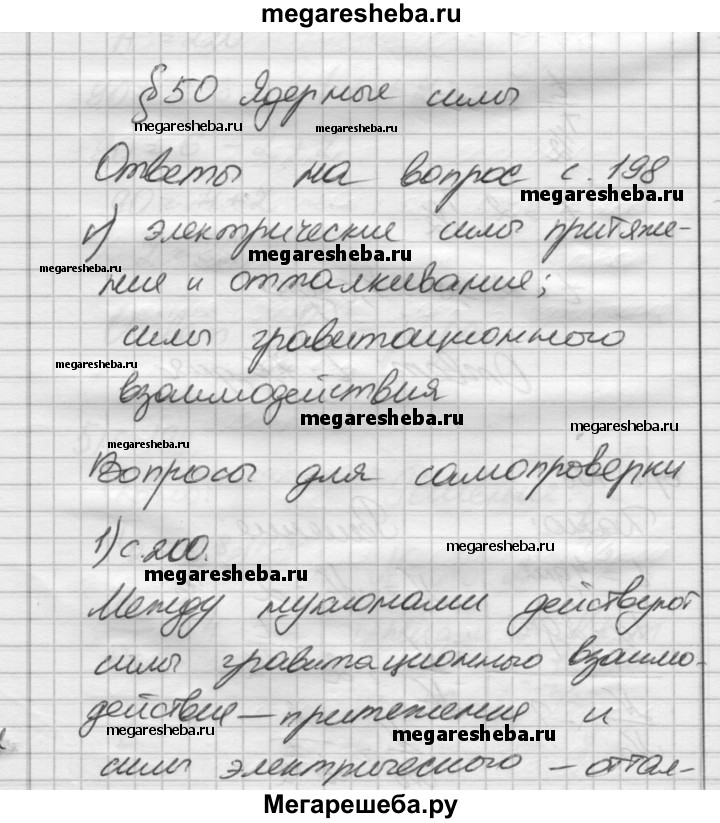 megaresheba.ru
§ 50 Ядерные силы
megaresheba.ru
megaresheba.ru
Ответы на вопрос с. 198
megaresheba.ru
1) электрические силы притяже-
megaresheba.ru
megaresheba.ru
ния и отталкивание;
силы гравитационного
megaresheba.ru
взаимодействия
megaresheba.ru
megaresheba.ru
megaresheba.ru
Вопросы для самопроверки
1) с.200.
megaresheba.ru
megaresheba.ru
Между нуклонами действуют
силы гравитационного взаимо-
действия – притяжения и
megaresheba.ru
megaresheba.ru
силы электрического – оттал-
Мегарешеба.ру